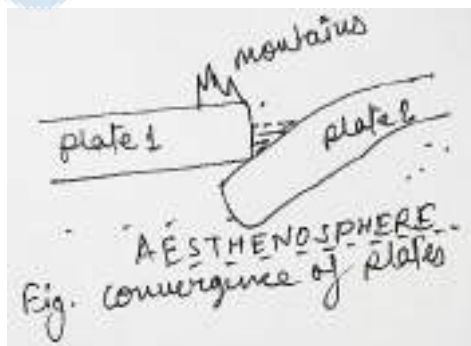 mountains
plate 1
plate 2
AESTHENOSPHERE
Fig. convergence of plates